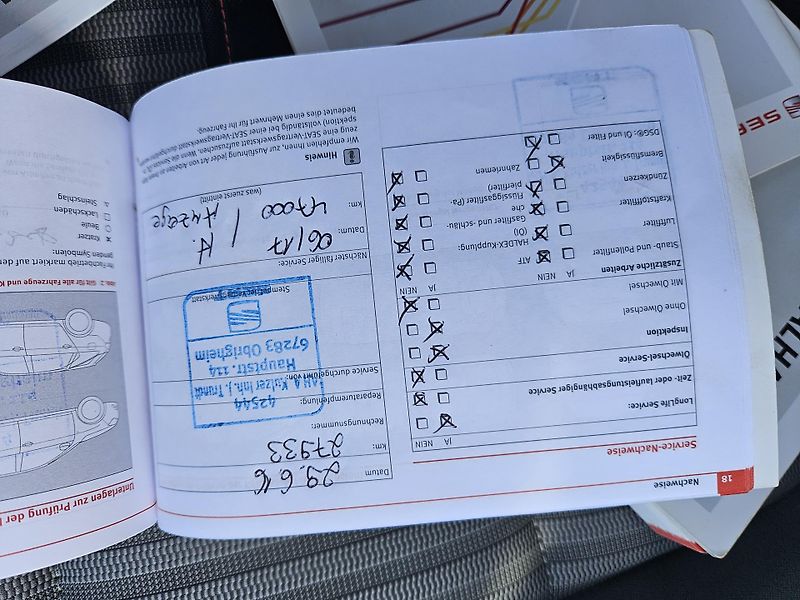 Nachweise
18
Service-Nachweise
JA NEIN
LongLife Service:
Zeit- oder laufleistungsabhängiger Service
Ölwechsel-Service
Inspektion
Ohne Ölwechsel
Mit Ölwechsel
JA NEIN
Zusätzliche Arbeiten
JA NEIN
Staub- und Pollenfilter
Luftfilter
Kraftstofffilter
Zündkerzen
Bremsflüssigkeit
DSG®: Öl und Filter
ATF
HALDEX-Kupplung:
(Öl)
Gasfilter und -schläu-
che
Flüssiggasfilter (Pa-
pierfilter)
Zahnriemen
Datum
29.6.16
km:
27933
Rechnungsnummer:
Reparaturempfehlung:
Service durchgeführt von:
42544
Kulzer Inh. J. Trundt
Hauptstr. 114
67283 Obrigheim
Nächster fälliger Service:
Datum:
06/17
km:
47000
(was zuerst eintritt)
Hinweis
Wir empfehlen Ihnen, zur Ausführung jeder Art von Arbeiten an Ihrem
zeug eine SEAT-Vertragswerkstatt aufzusuchen. Wenn die Service-
spektion) vollständig bei einer SEAT-Vertragswerkstatt
bedeutet dies einen Mehrwert für Ihr Fahrzeug.
Unterlagen zur Prüfung der
Gilt für alle Fahrzeuge und
markiert auf der
genden Symbolen:
Kratzer
Beule
Lackschäden
Steinschlag